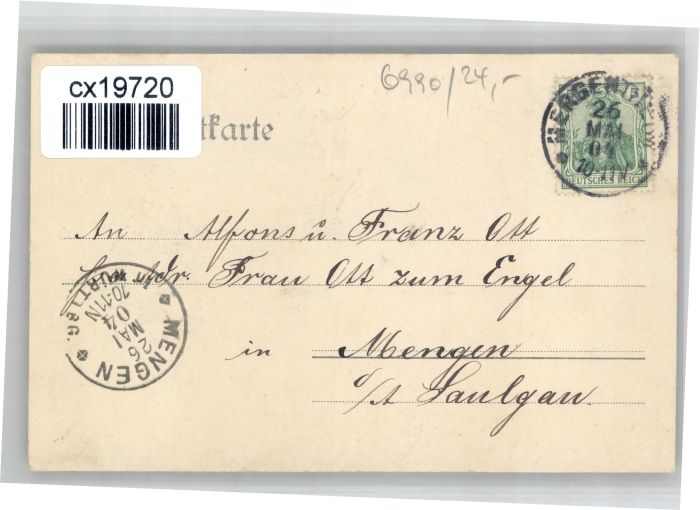 cx19720
6990/24,-
tkarte
MERGENTH
26
MAI
04
10-11V
5
DEUTSCHES REICH
An Alfons u. Franz Ott
Adr. Frau Ott zum Engel
in Mengen
o/A Saulgau.
MENGEN
26
MAI
04
10-11N
WÜRTTBG.